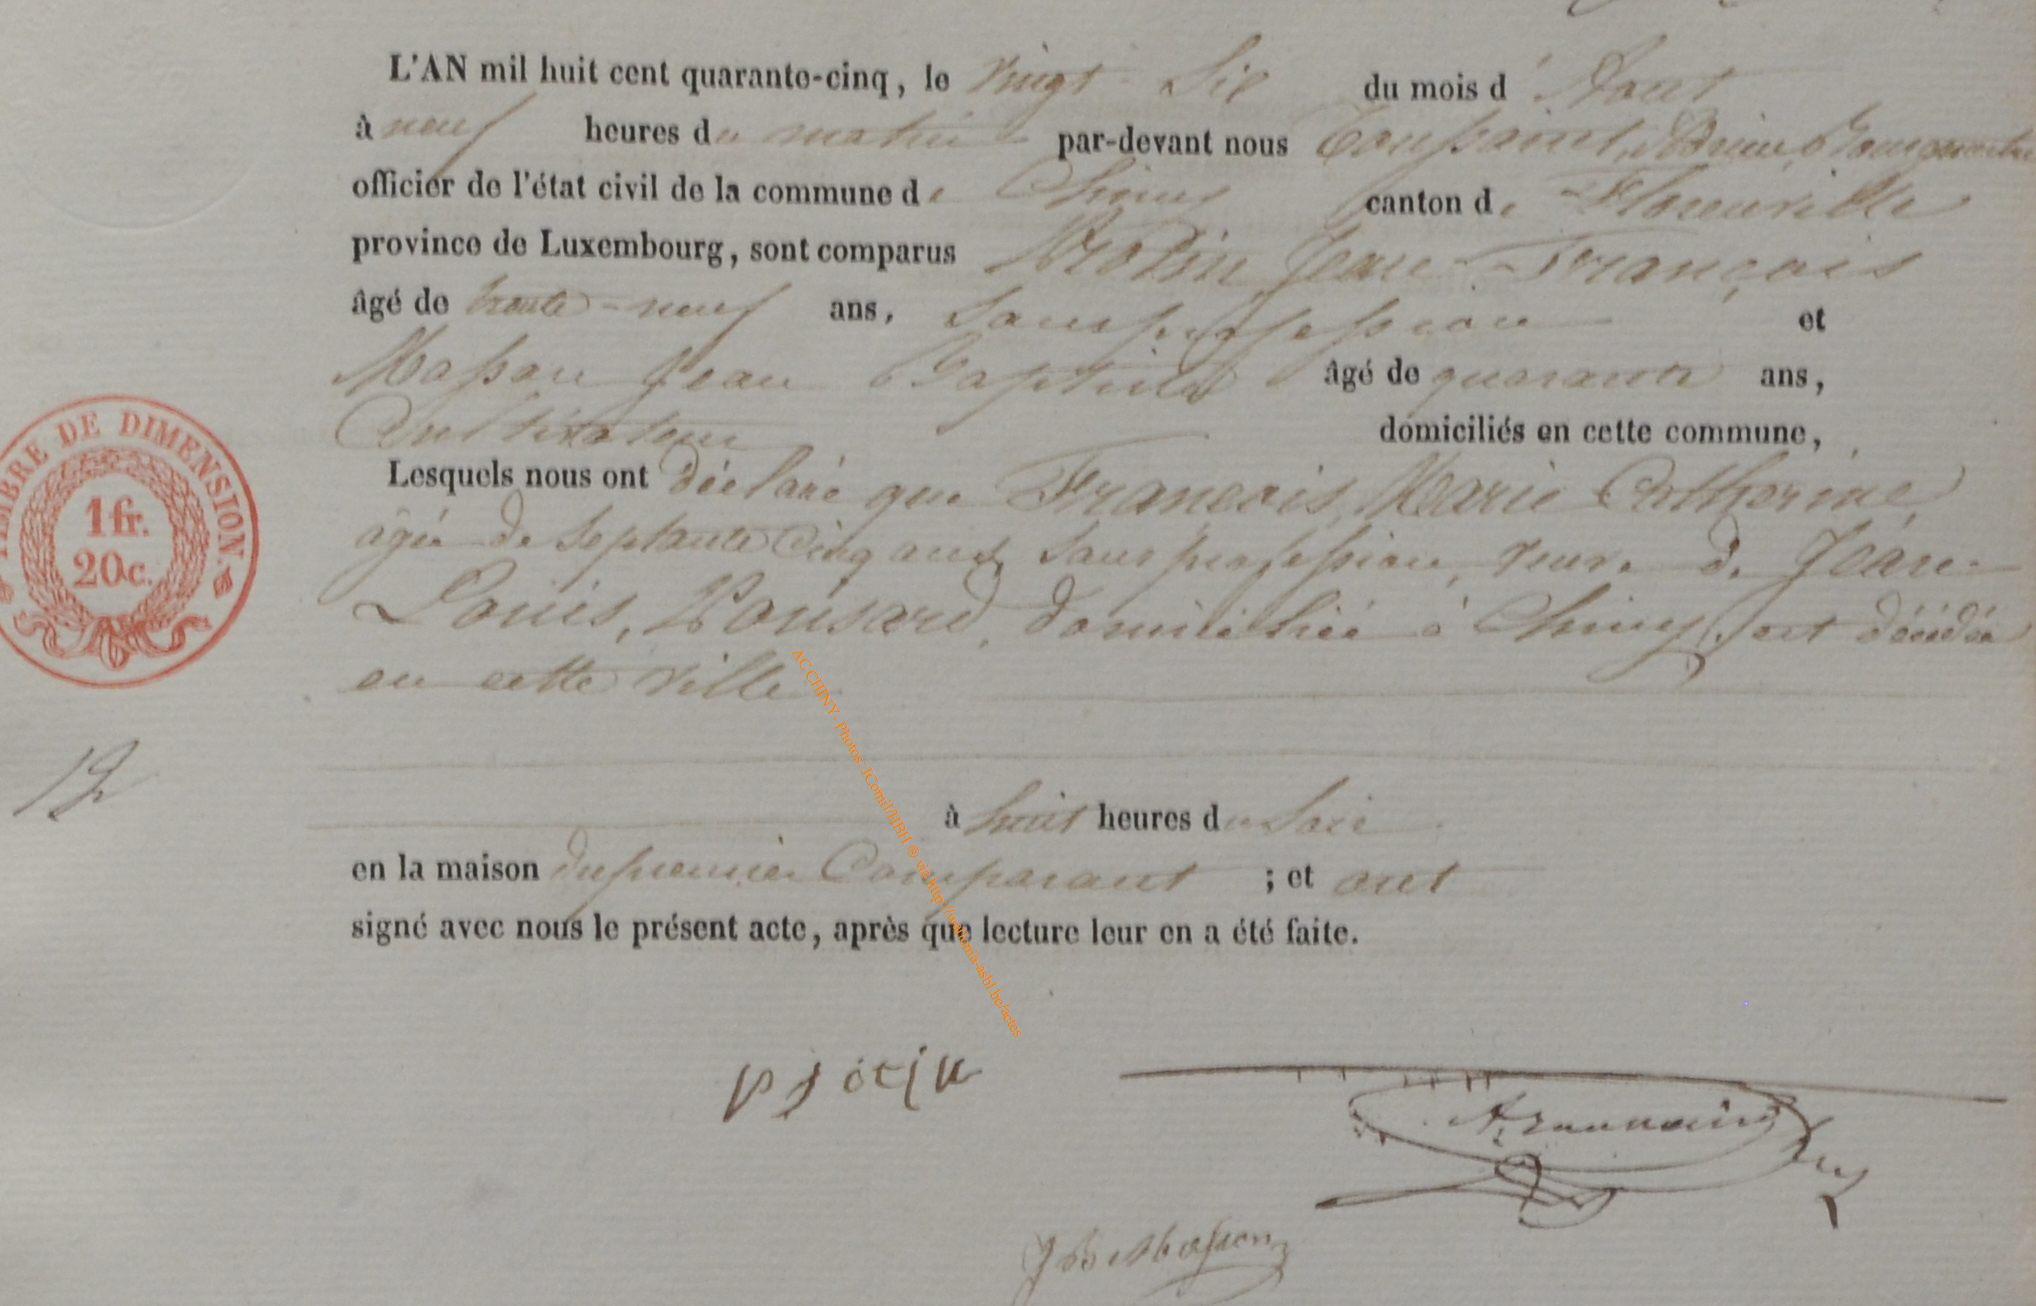 L'AN mil huit cent quarante-cinq, le vingt-Six du mois d'Aout
à neuf heures du matin par-devant nous Toussaint, Bourgmestre
officier de l'état civil de la commune de Chiny canton de Florenville
province de Luxembourg, sont comparus Jean-François
âgé de trente-neuf ans, Sans profession et
Masson Jean Baptiste âgé de quarante ans,
Cultivateur domiciliés en cette commune,
Lesquels nous ont déclaré que François, Marie Catherine,
âgée de Septante Cinq ans, Sans profession, veuve de Jean-
Louis, domiciliée à Chiny, est décédée
en cette ville
TIMBRE DE DIMENSION.
1fr.
20c.
à huit heures du Soir
en la maison du premier Comparant ; et ont
signé avec nous le présent acte, après que lecture leur en a été faite.
AC CHINY. Photos
JB Masson